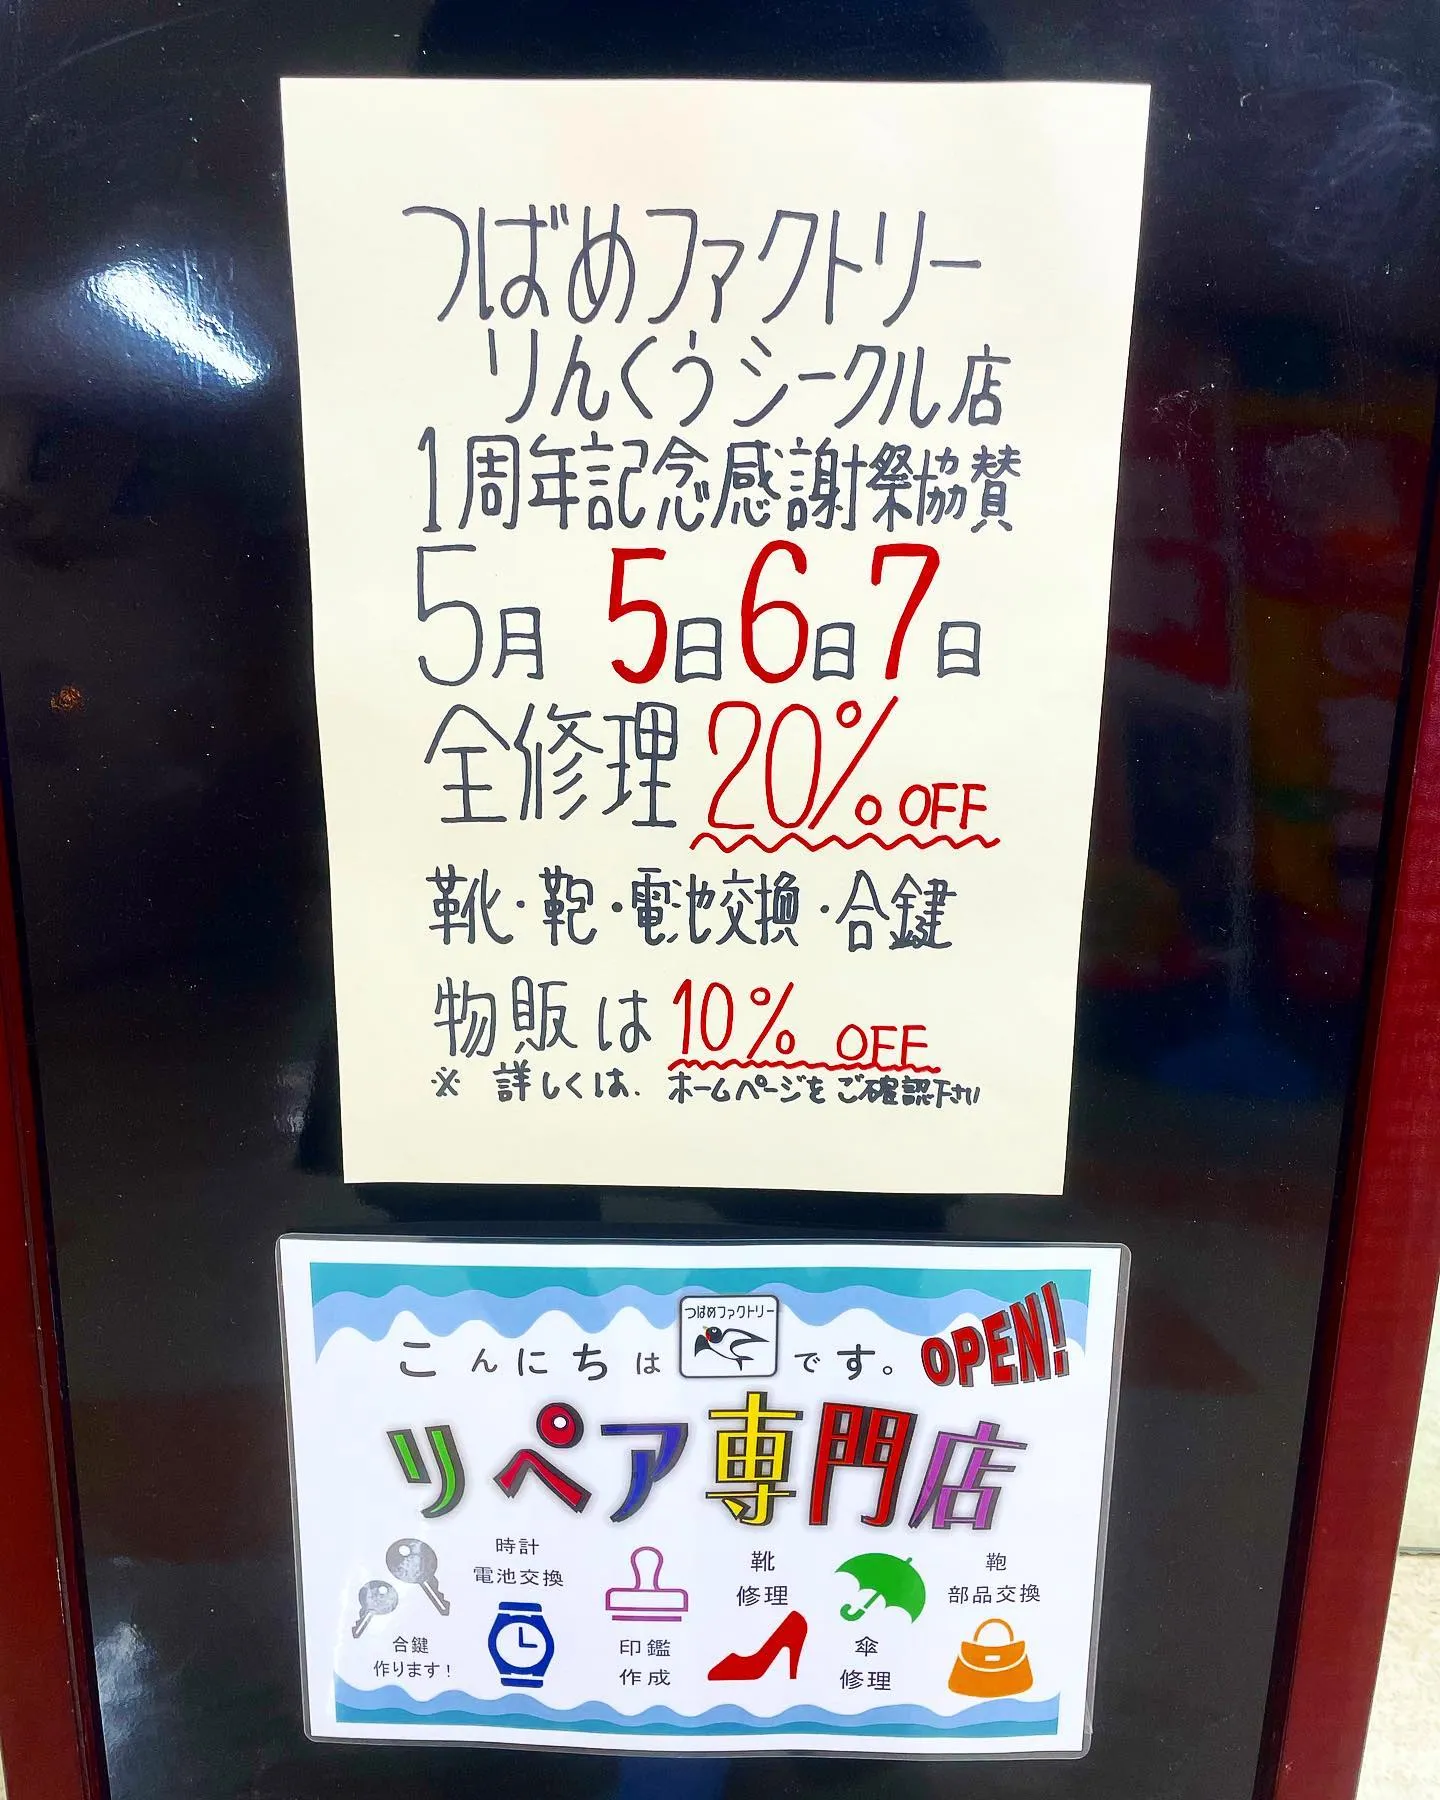 つばめファクトリー
りんくうシークル店
1周年記念感謝祭協賛
5月 5日6日7日
全修理 20% OFF
靴・鞄・電池交換・合鍵
物販は 10% OFF
※ 詳しくは、ホームページをご確認下さい
こんにちは つばめファクトリー です。 OPEN!
リペア専門店
合鍵
作ります!
時計
電池交換
印鑑
作成
靴
修理
傘
修理
鞄
部品交換